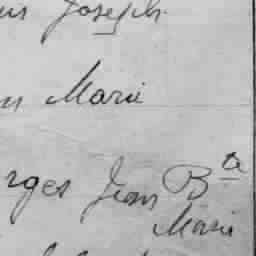 us Joseph
n Marie
rges Jean Bta
Marie